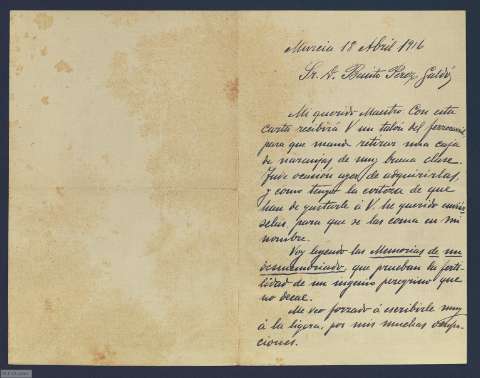 Murcia 18 Abril 1916
Sr. D. Benito Pérez Galdós
Mi querido Maestro: Con esta
carta recibirá V un talón del ferrocarril
para que mande retirar una caja
de naranjas de muy buena clase.
Tuve ocasión ayer de adquirirlas,
y como tengo la certeza de que
han de gustarle á V. he querido enviár-
selas, para que se las coma en mi
nombre.
Voy leyendo las Memorias de un
desmemoriado, que prueban la ferti-
lidad de un ingenio peregrino que
no decae.
Me veo forzado á escribirle muy
á la ligera, por mis muchas ocupa-
ciones.